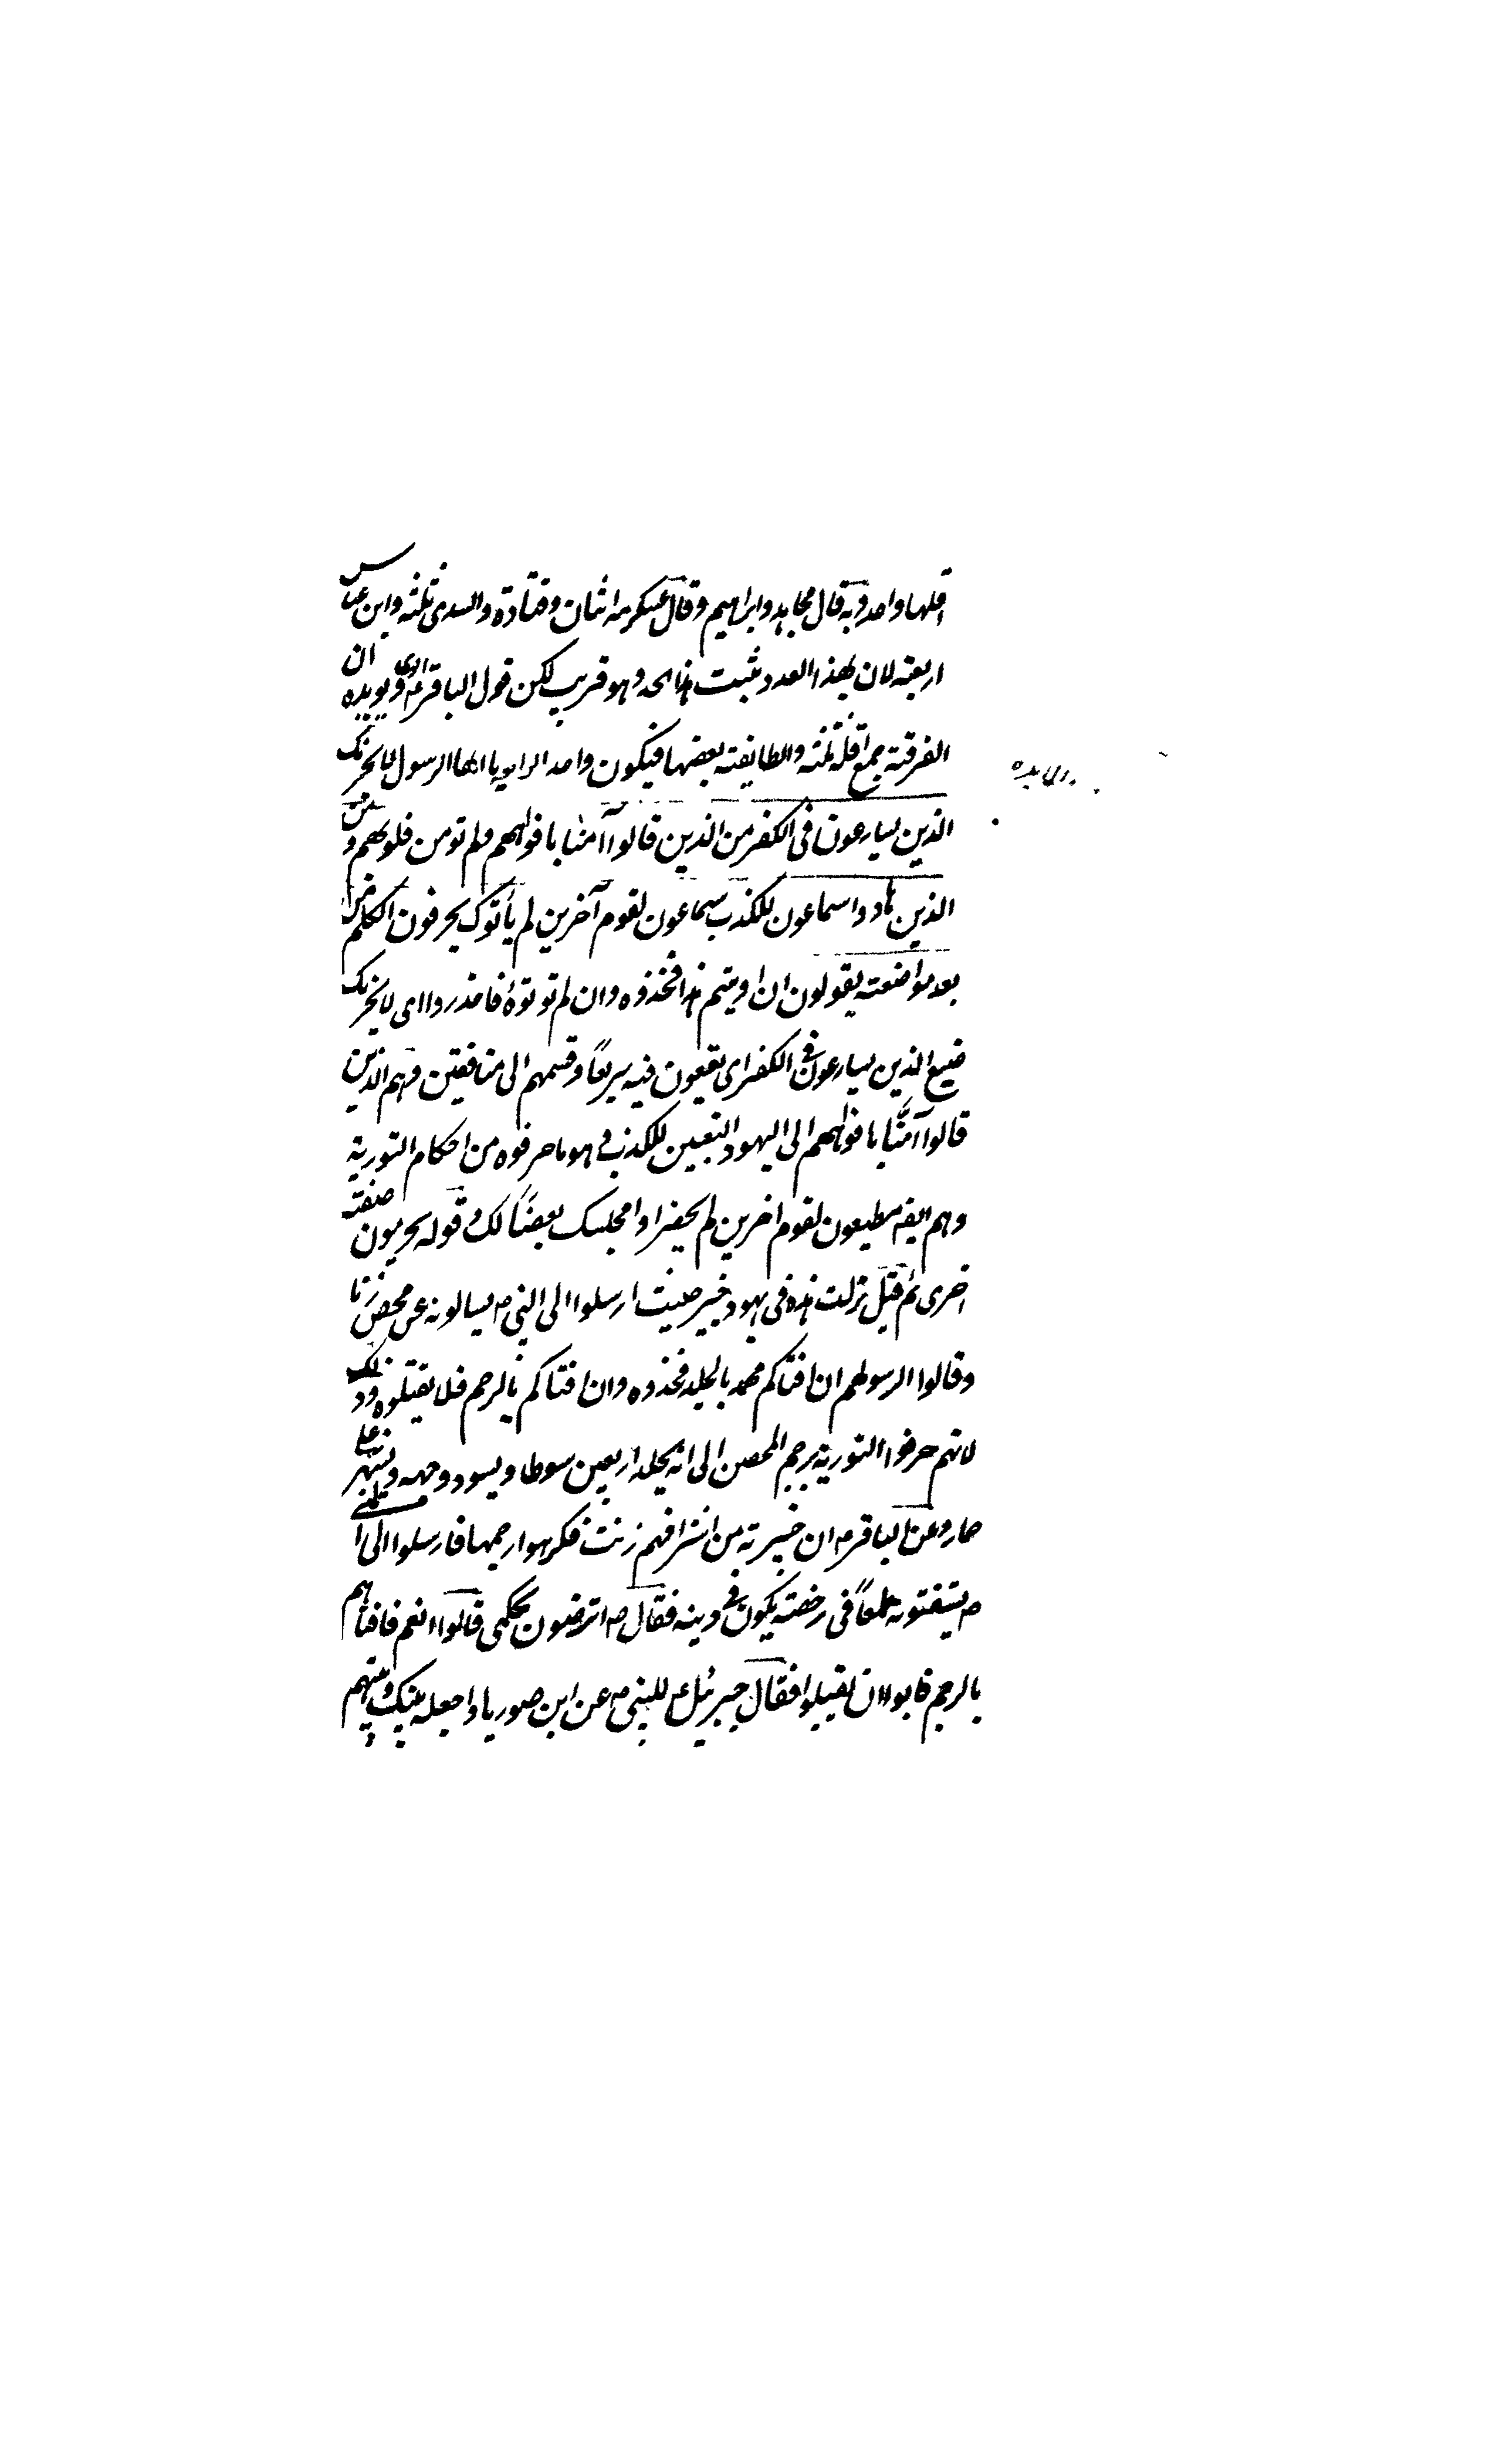 اقلها واحد وبه قال مجاهد وابراهيم وقال عكرمه اثنان وقتادة والسدى ثلثه وابن عباس
اربعة لان بهذا العدد يثبت هذا الحد وهو قريب لكن قول الباقر ع اقوى ويويده ان
الفرقة جمع اقله ثلثه والطايفة بعضها فيكون واحد الرابعه يا ايها الرسول لا يحزنك
المايده
الذين يسارعون فى الكفر من الذين قالوا آمنا بافواههم ولم تومن قلوبهم ومن
الذين هادوا سماعون للكذب سماعون لقوم آخرين لم يأتوك يحرفون الكلم من
بعد مواضعه يقولون ان اوتيتم هذا فخذوه وان لم توتوه فاحذروا اى لا يحزنك
صنيع الذين يسارعون فى الكفر اى يقعون فيه سريعًا وقسمهم الى منافقين وهم الذين
قالوا آمنّا بافواههم الى اليهود التبعين للكذب وهو ما حرفوه من احكام التورية
وهم ايضه مطيعون لقوم اخرين لم يحضروا مجلسك بعضًا لك وقوله يحرفون صفة
اخرى ثم قيل نزلت هذه فى يهود خيبر حيث ارسلوا الى النبى ص يسالونه عن محصن زنا
وقالوا الرسولهم ان افتاكم محمد بالجلد فخذوه وان افتاكم بالرجم فلا تقبلوه وذلك
لانهم حرفوا التورية برجم المحصن الى انه يجلد اربعين سوطا ويسود وجهه ويشهر على
حمار وعن الباقر ع ان خيبرية من اشرافهم زنت فكرهوا رجمها فارسلوا الى النبى
ص يستفتونه طمعًا فى رخصة يكون فى دينه فقال ص اترضون بحكمى قالوا نعم فافتاهم
بالرجم فابوا ان يقبلوا فقال جبرئيل ع للنبى ص عن ابن صوريا واجعله بينك وبينهم